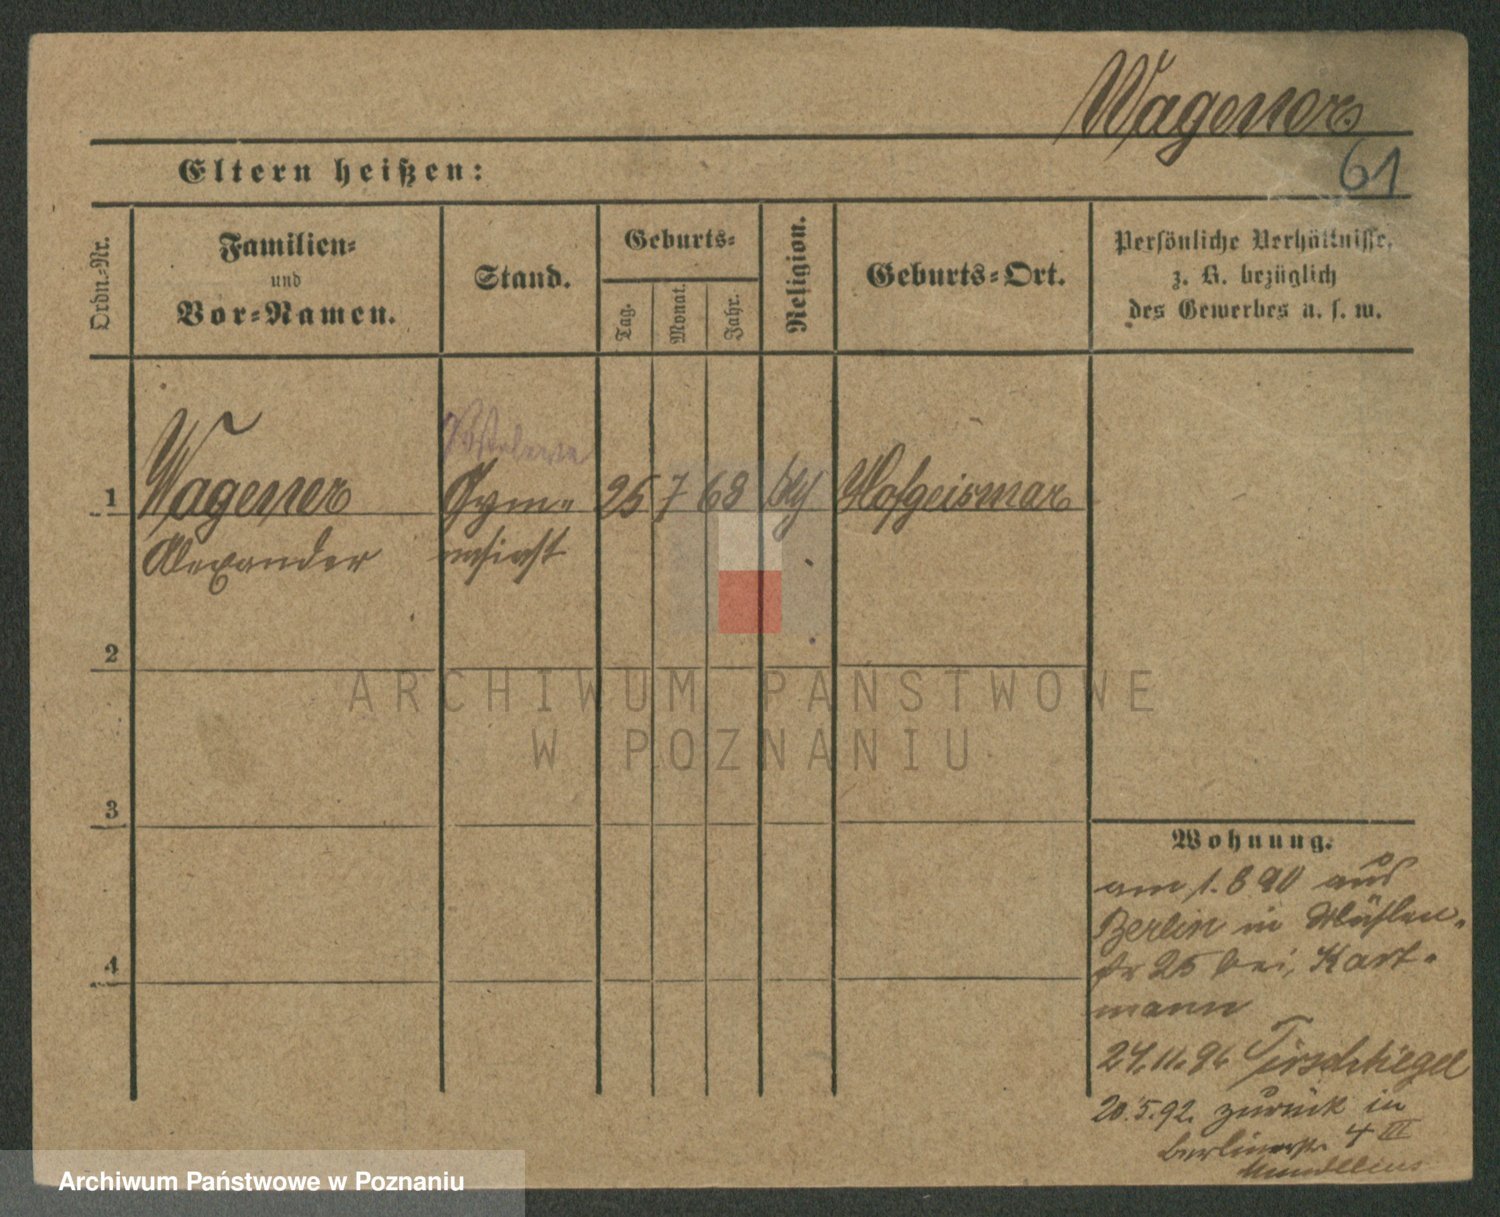 Wagener
61
Eltern heißen:
Ordn.-Nr.
Familien-
und
Vor-Namen.
Stand.
Geburts-
Tag.
Monat.
Jahr.
Religion.
Geburts-Ort.
Persönliche Verhältnisse,
z. B. bezüglich
des Gewerbes u. s. w.
1
Wagener
Alexander
Gym-
nasiast
25 7 68
Hofgeismar
2
3
4
Wohnung.
am 1. 8 90 aus
Berlin in Mühlen-
str 25 bei Hart-
mann
24.11.90 Tirschtiegel
20.5.92. zurück in
Berlinerstr. 4 III
ARCHIWUM PAŃSTWOWE
W POZNANIU
Archiwum Państwowe w Poznaniu